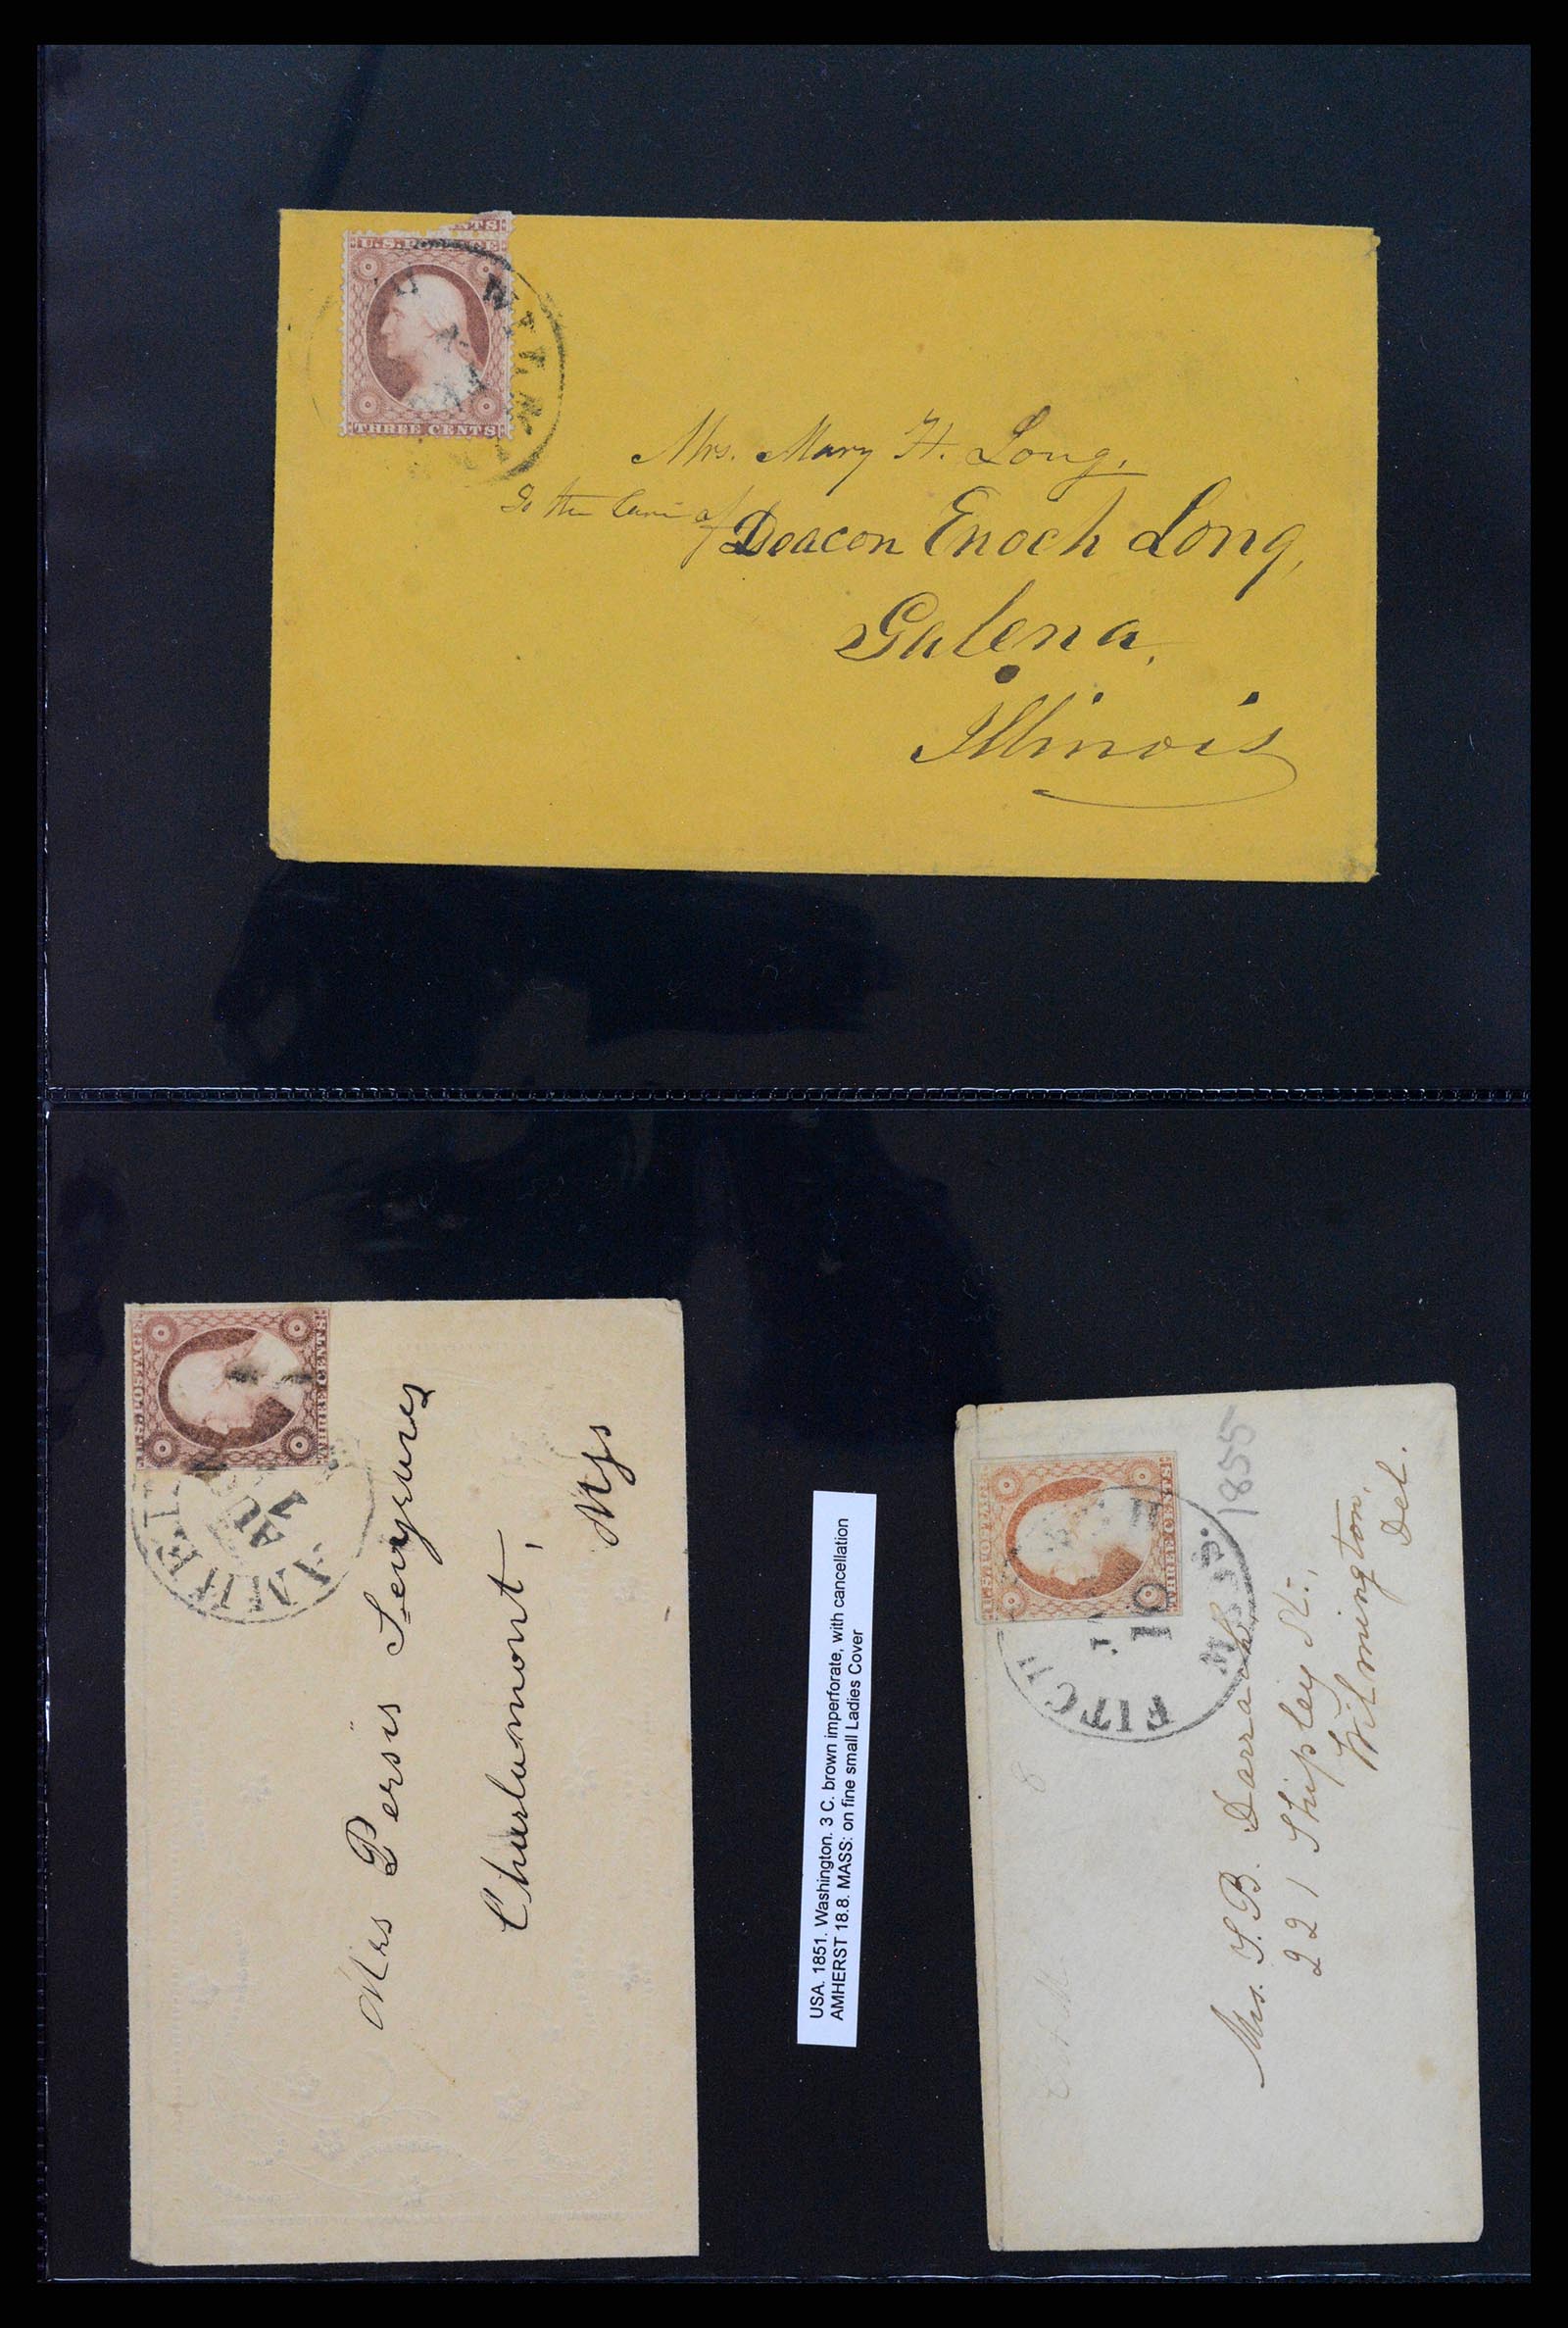 NTS
U.S. POSTAGE
THREE CENTS
Mrs. Mary H. Long,
To the Care of
Deacon Enoch Long,
Galena,
Illinois
U.S. POSTAGE
THREE CENTS
AU
Mrs Persis
Charlemont,
USA. 1851. Washington. 3 C. brown imperforate, with cancellation
AMHERST 18.8. MASS: on fine small Ladies Cover
U.S. POSTAGE
THREE CENTS
1855
FITCH
MASS.
10
Mrs. S. B. Darrach
221 Shipley St.,
Wilmington,
Del.